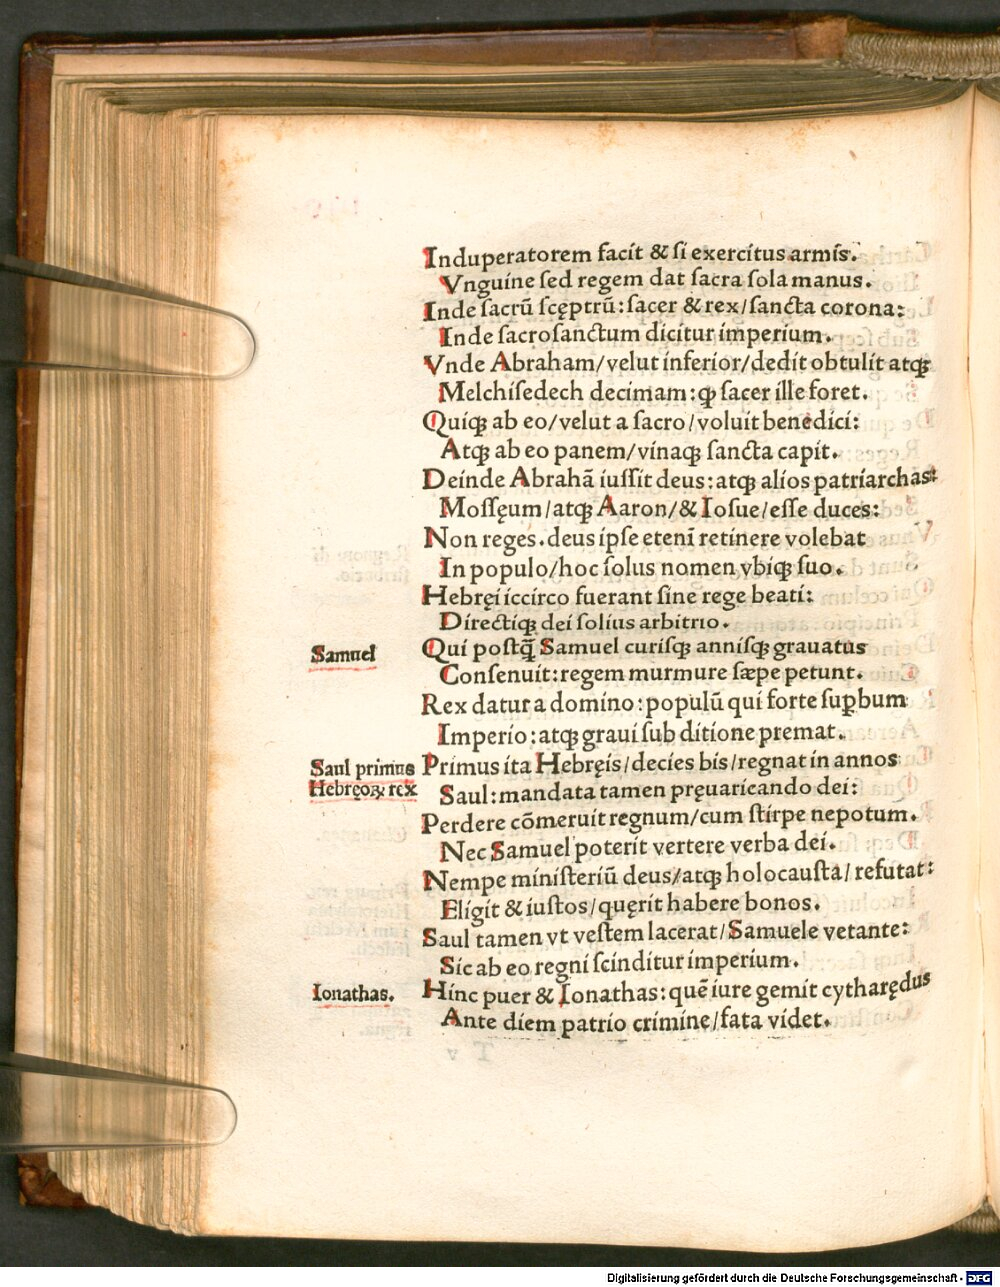 Induperatorem facit & si exercitus armis.
Vnguine sed regem dat sacra sola manus.
Inde sacrũ scęptrũ: sacer & rex/ sancta corona:
Inde sacrosanctum dicitur imperium.
Vnde Abraham/ velut inferior/ dedit obtulit atqꝫ
Melchisedech decimam: ꝙ sacer ille foret.
Quiqꝫ ab eo/ velut a sacro/ voluit benedici:
Atqꝫ ab eo panem/ vinaqꝫ sancta capit.
Deinde Abrahã iussit deus: atqꝫ alios patriarchas:
Mossęum/ atqꝫ Aaron/ & Iosue/ esse duces:
Non reges. deus ipse etenĩ retinere volebat
In populo/ hoc solus nomen vbiqꝫ suo.
Hebręi iccirco fuerant sine rege beati:
Directiqꝫ dei solius arbitrio.
Samuel
Qui postq̃ Samuel curisqꝫ annisqꝫ grauatus
Consenuit: regem murmure sæpe petunt.
Rex datur a domino: populũ qui forte suꝑbum
Imperio: atqꝫ graui sub ditione premat.
Saul primus
Hebręoꝝ rex
Primus ita Hebręis/ decies bis/ regnat in annos
Saul: mandata tamen pręuaricando dei:
Perdere cõmeruit regnum/ cum stirpe nepotum.
Nec Samuel poterit vertere verba dei.
Nempe ministeriũ deus/ atqꝫ holocausta/ refutat:
Eligit & iustos/ quęrit habere bonos.
Saul tamen vt vestem lacerat/ Samuele vetante:
Sic ab eo regni scinditur imperium.
Ionathas.
Hinc puer & Ionathas: quẽ iure gemit cytharędus
Ante diem patrio crimine/ fata videt.
Digitalisierung gefördert durch die Deutsche Forschungsgemeinschaft - DFG